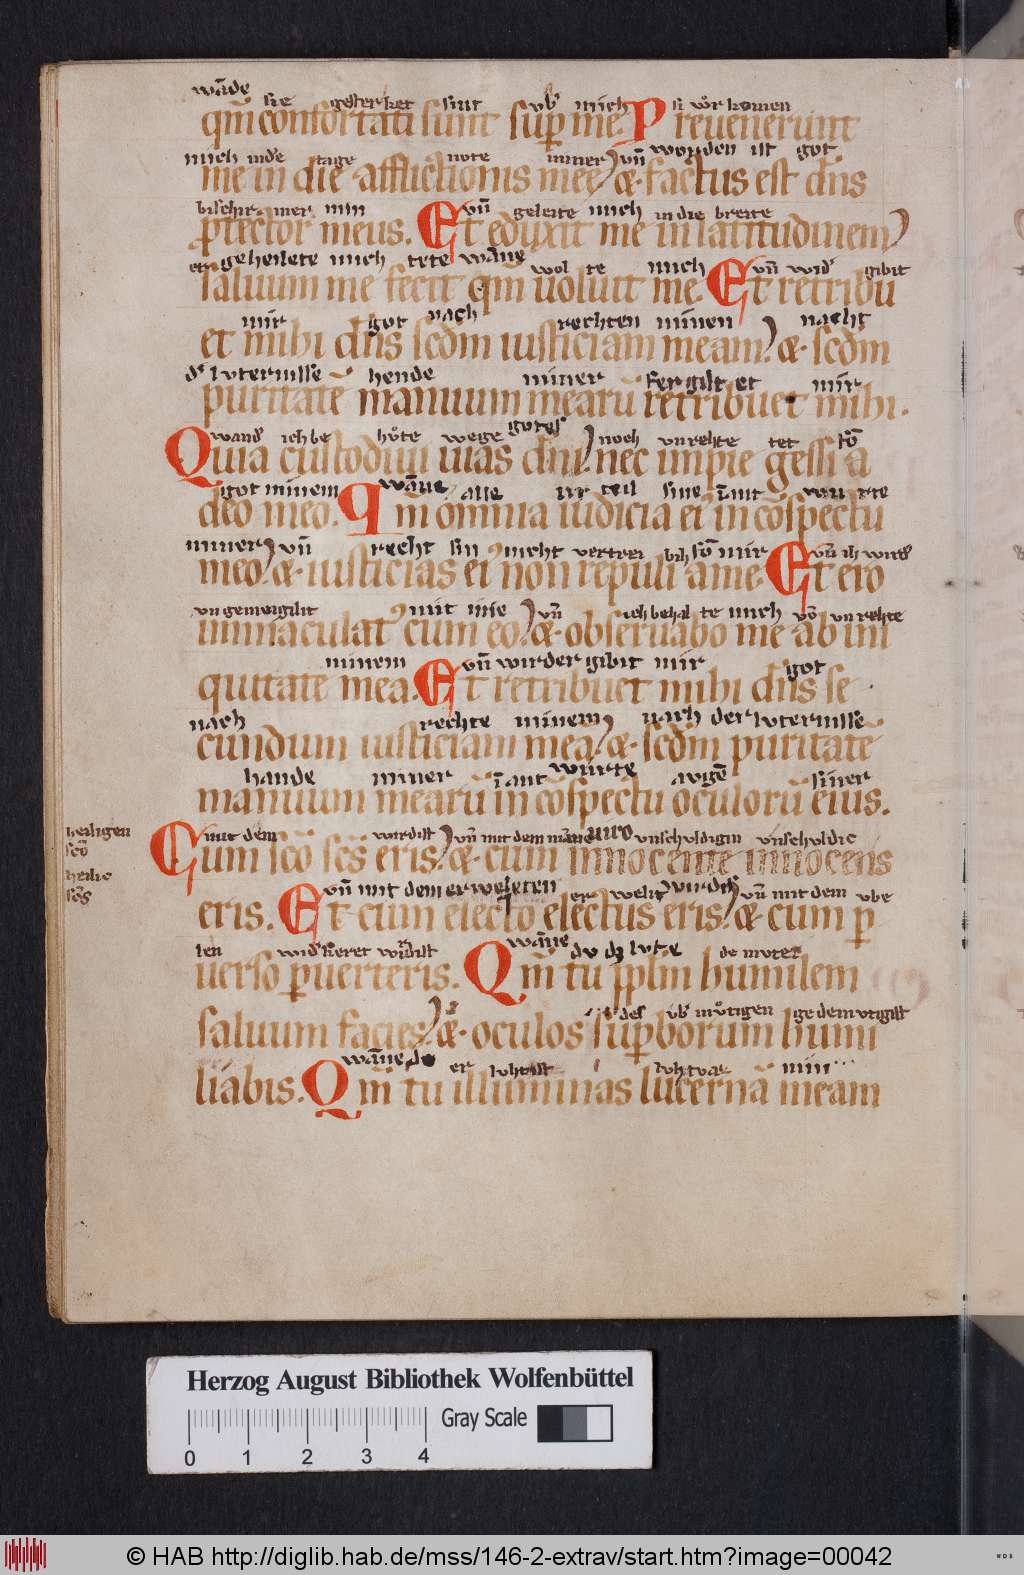 wāde sie gesterket sint vb' mich si vor komen
qm̄ confortati sunt sup me. Preuenerunt
mich in d'e tage note miner vn̄ worden ist got
me in die afflictionis mee. & factus est dn̄s
beschirmer min vn̄ geleite mich in die breite
ptector meus. Et eduxit me in latitudinem
geheilete mich tete wāne wol te mich vn̄ wid' gibit
saluum me fecit qm̄ uoluit me. Et retribu
mir got nach rechten minen nacht
et mihi dn̄s scd̄m iusticiam meam. & scd̄m
d' luternisse hende miner mir
puritatē manuum mearū retribuet mihi.
wand' ich be hůte wege gotes noch vnrehte tet
Quia custodiui uias dn̄i. nec impie gessi a
got minem wāne alle vr teil sine
deo meo. Qm̄ omnia iudicia ei' in cōspectu
miner vn̄ recht sin nicht mir vn̄ ih wird'
meo. & iusticias ei' non repuli a me. Et ero
mit vn̄ ich behal te mich vō vnrehte
inmaculat' cum eo. & obseruabo me ab ini
minem vn̄ wider gibit mir got
quitate mea. Et retribuet mihi dn̄s se
nach rechte minem nach der luternisse
cundum iusticiam mea. & scd̄m puritatē
hande miner siner
manuum mearū in cōspectu oculorū eius.
heiligen
scō
heilic
scs̄
mit dem wirdist vn̄ mit dem viro vnscholdigin vnscholdic
Cum scō scs̄ eris. & cum innocente innocens
vn̄ mit dem erweleten wirdist vn̄ mit dem vbe
eris. Et cum electo electus eris. & cum p
len
uerso puerteris. Qm̄ tu pplm humilem
wāne dv dz lvte
saluum facies. & oculos supborum humi
des vb' můtigen
liabis. Qm̄ tu illuminas lucernā meam
wāne min
Herzog August Bibliothek Wolfenbüttel
Gray Scale
0 1 2 3 4
© HAB http://diglib.hab.de/mss/146-2-extrav/start.htm?image=00042